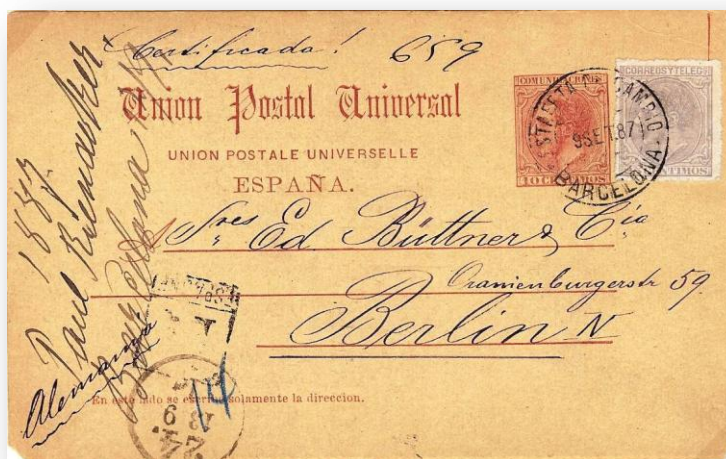 Certificada! 659
Union Postal Universal
UNION POSTALE UNIVERSELLE
ESPAÑA.
COMUNICACIONES
10 CENTIMOS
CORREOS Y TELEGS
CENTIMOS
ESTAFETA DE CAMBIO
9 SET. 87
BARCELONA.
Sres Ed Büttner & Cia
Oranienburgerstr 59.
Berlin N
1887
Paul
Barcelona
Alemania
14
En este lado se escribe solamente la direccion.